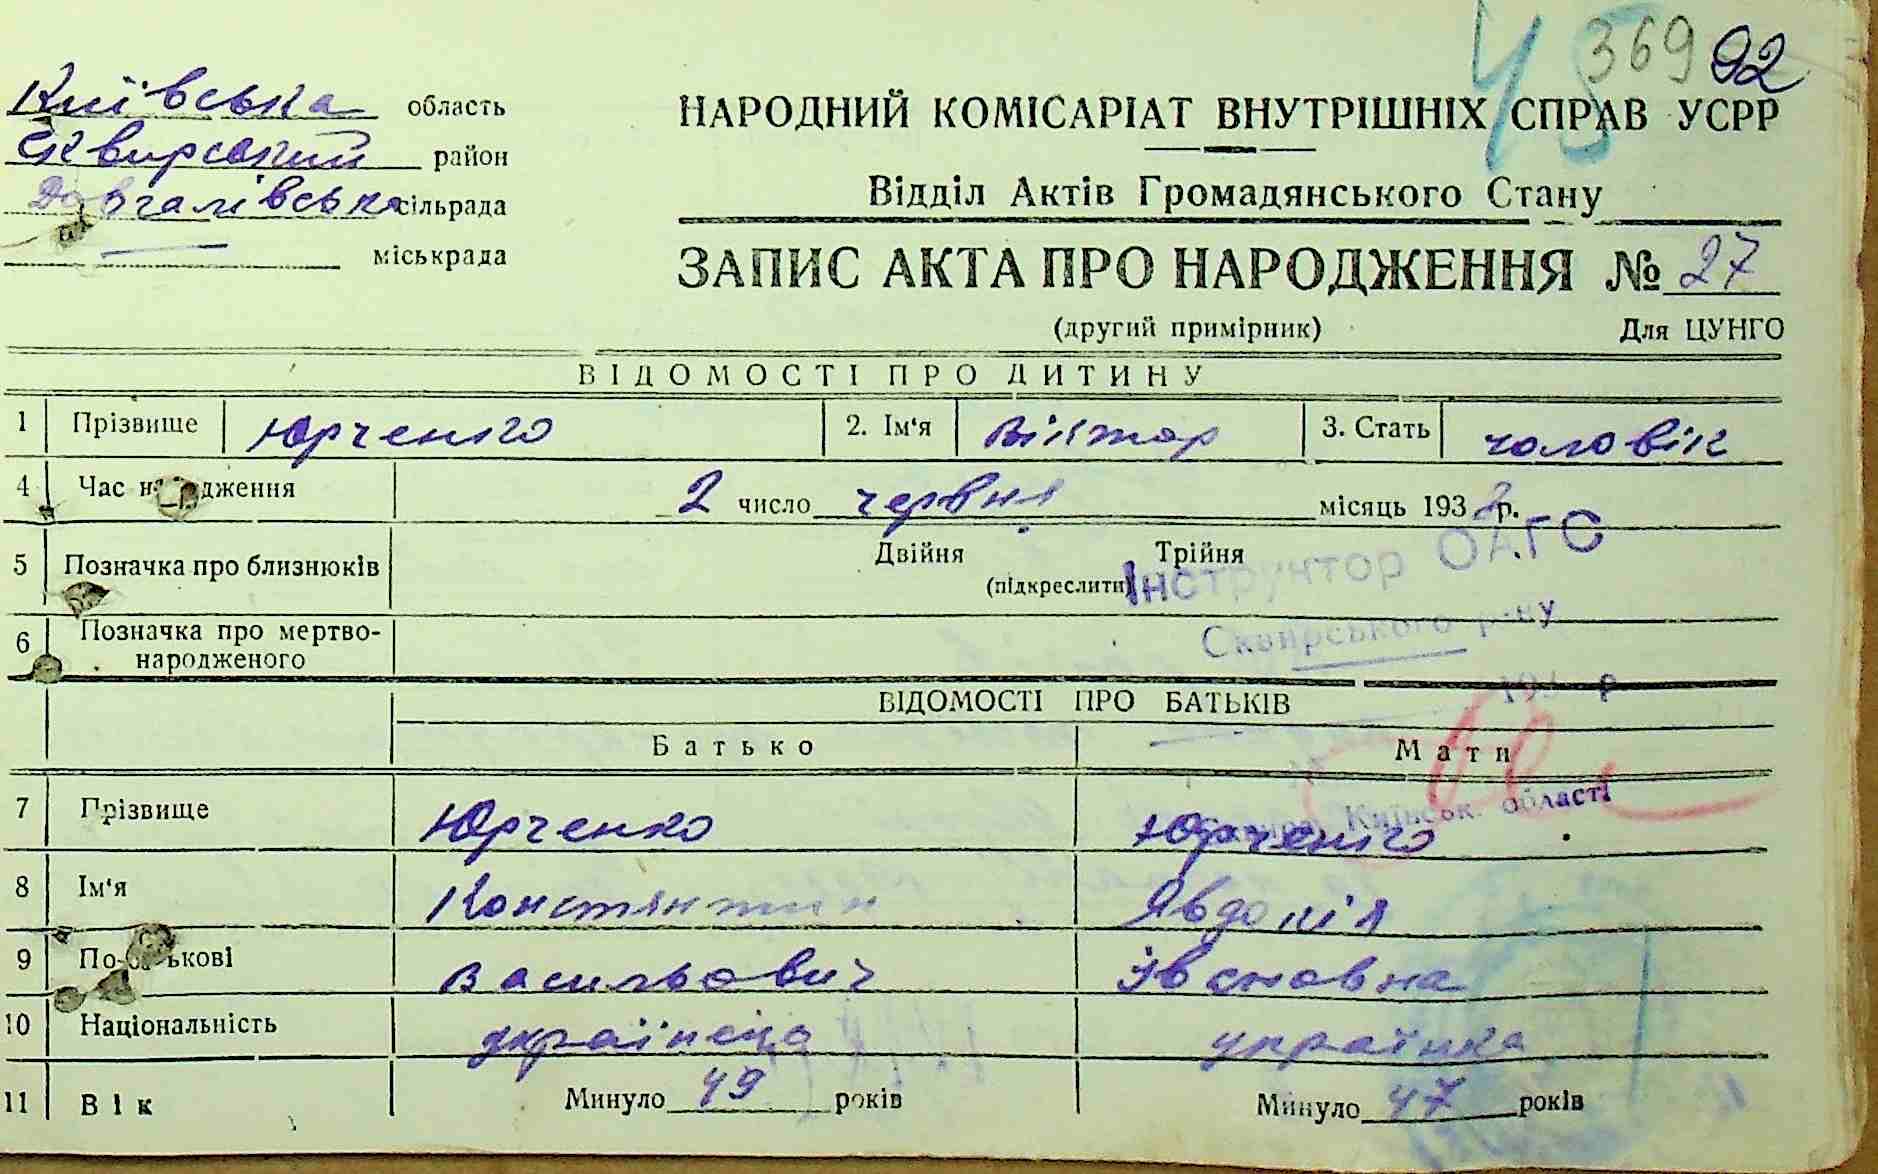 45 369 92
Київська область
Сквирський район
Довгалівська сільрада
міськрада
НАРОДНИЙ КОМІСАРІАТ ВНУТРІШНІХ СПРАВ УСРР
Відділ Актів Громадянського Стану
ЗАПИС АКТА ПРО НАРОДЖЕННЯ № 27
(другий примірник) Для ЦУНГО
ВІДОМОСТІ ПРО ДИТИНУ
1 Прізвище Юрченко 2. Ім'я Віктор 3. Стать чоловік
4 Час народження 2 число червня місяць 193 р.
5 Позначка про близнюків Двійня Трійня
(підкреслити)
Інструктор ОАГС
Сквирського р-ну
6 Позначка про мертво-
народженого
193 р
ВІДОМОСТІ ПРО БАТЬКІВ
Батько Мати
Київськ. області
7 Прізвище Юрченко Юрченко
8 Ім'я Констянтин Явдокія
9 По-батькові Васильович Івановна
10 Національність українець українка
11 Вік Минуло 49 років Минуло 47 років